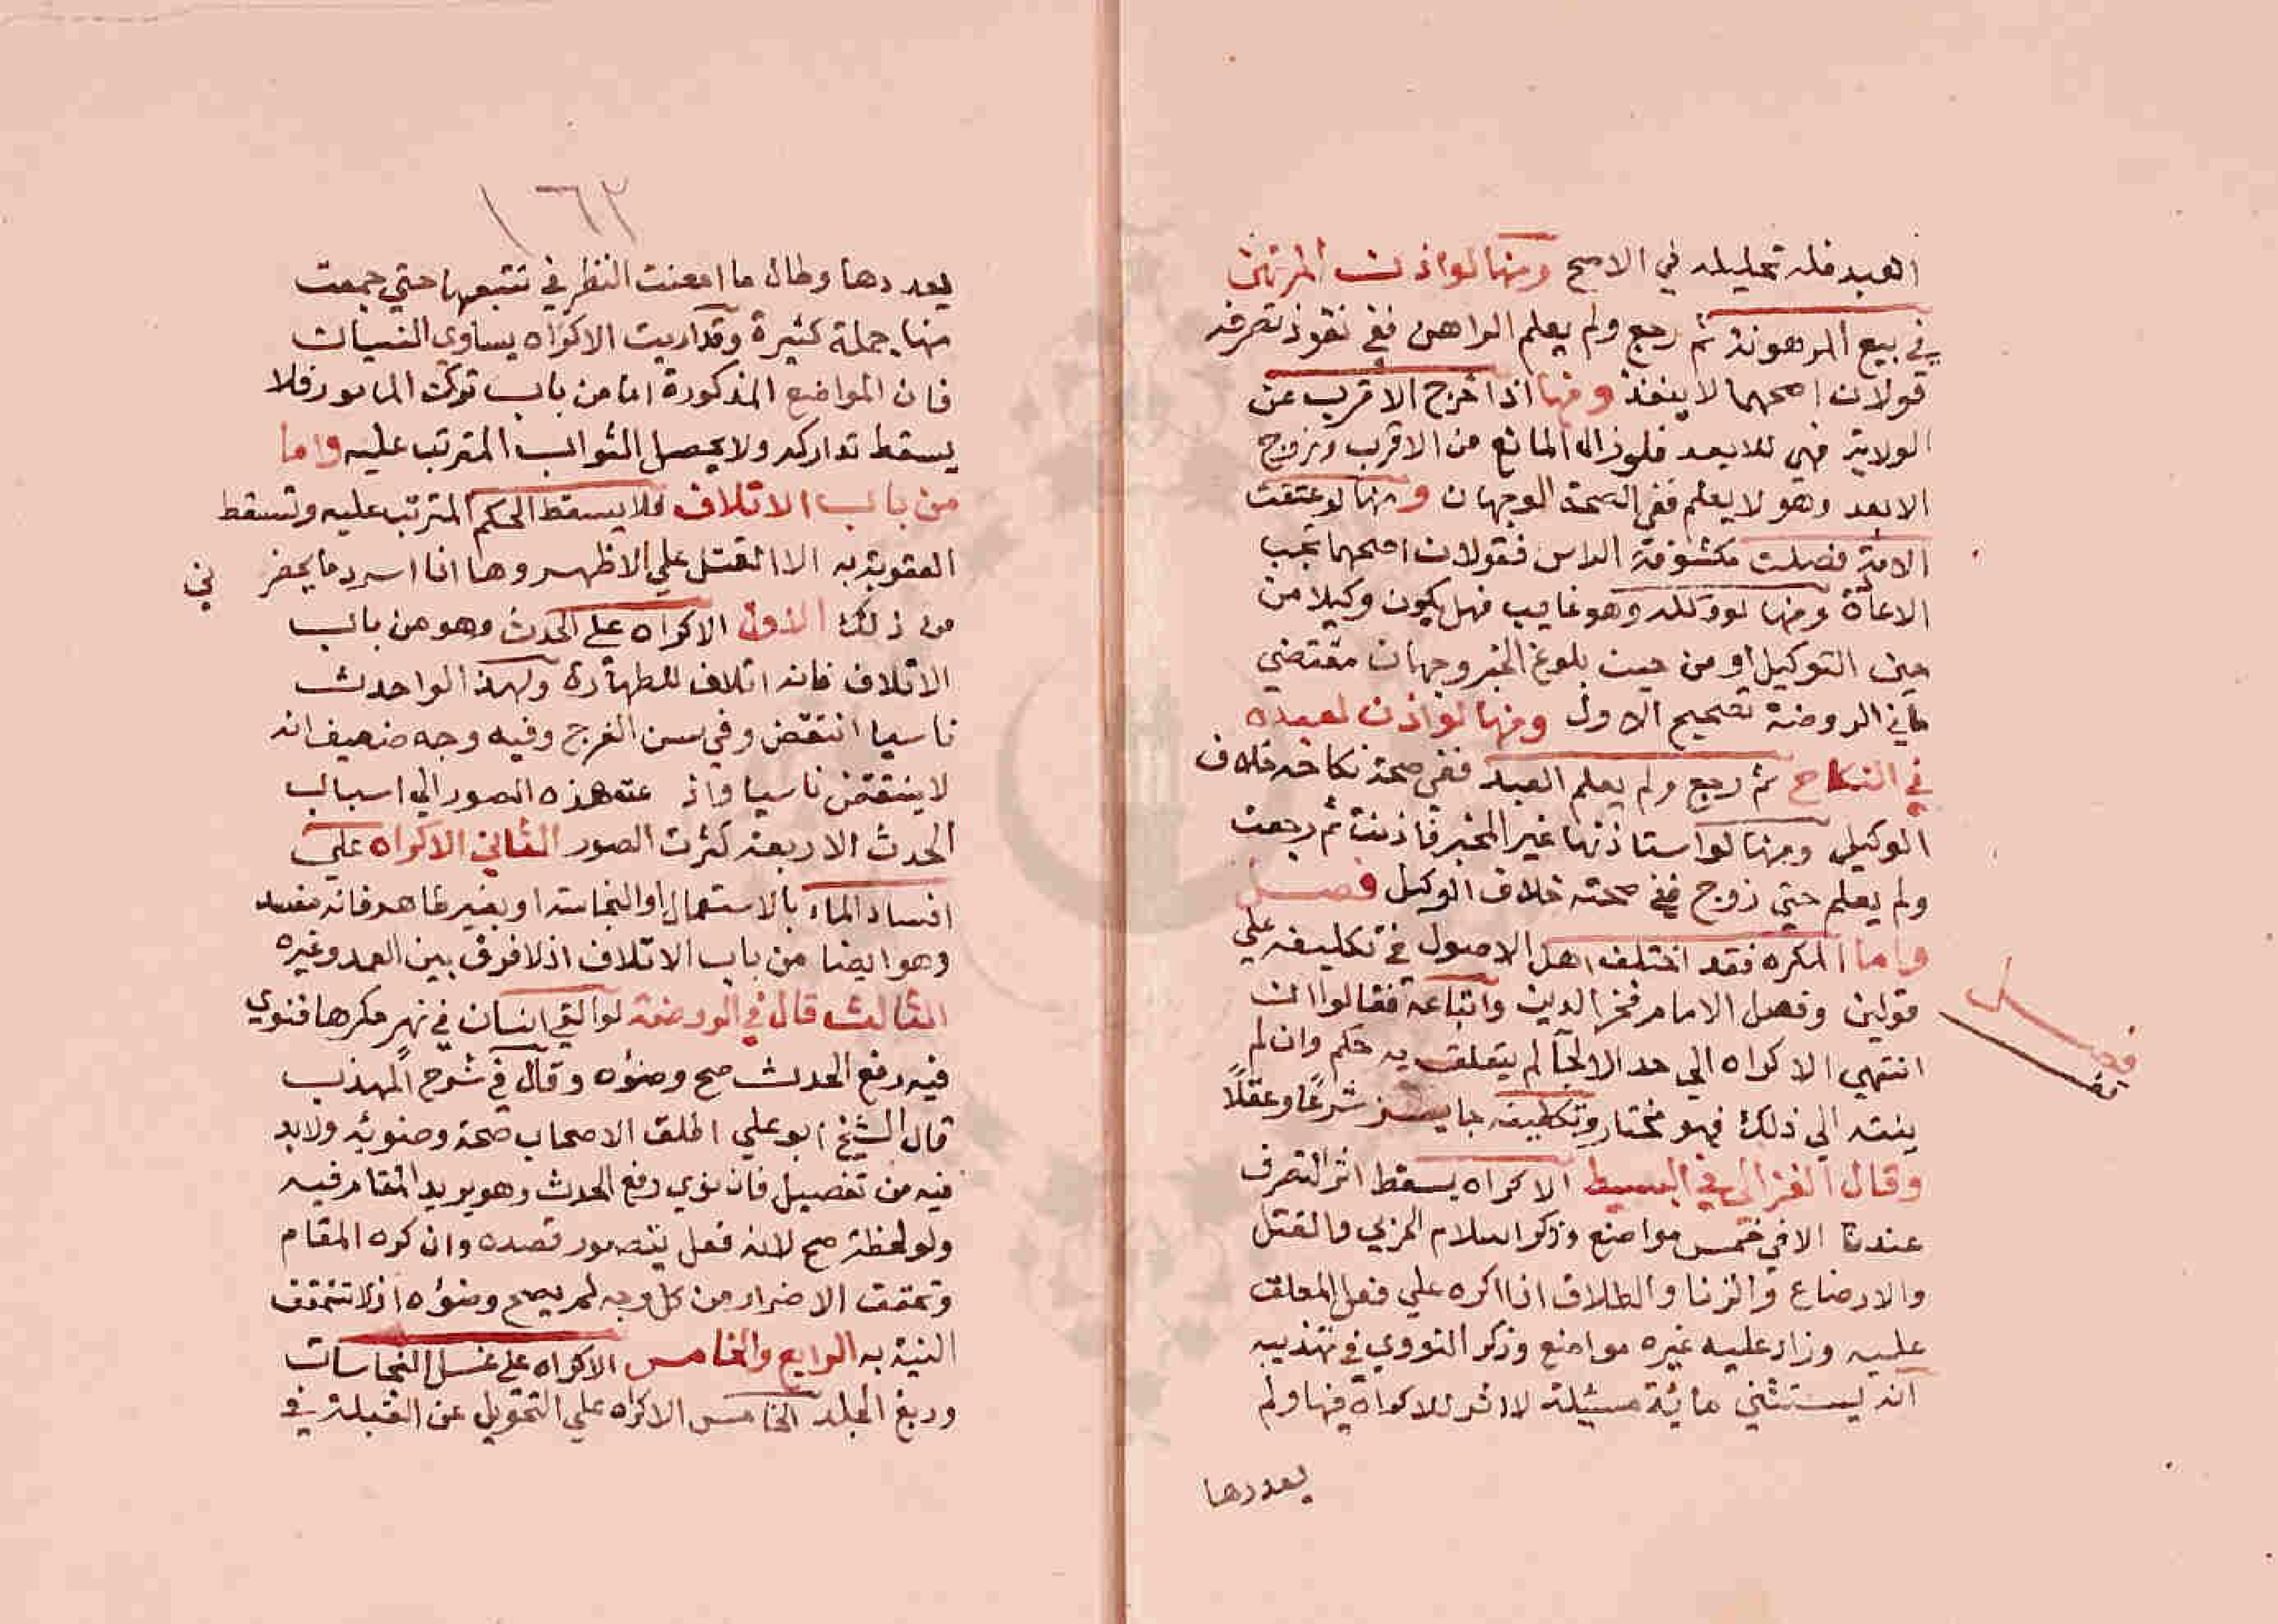 العبد فله تحليله في الاصح ومنها لو اذن المرتهن
في بيع المرهونة ثم رجع ولم يعلم الراهن ففي نفوذ تصرفه
قولان اصحهما لا ينفذ ومنها اذا خرج الاقرب عن
الولاية فهي للابعد فلو زال المانع من الاقرب وزوج
الابعد وهو لا يعلم ففي الصحة الوجهان ومنها لو عتقت
الامة فصلت مكشوفة الراس فقولان اصحهما تجب
الاعادة ومنها لو وكله وهو غايب فهل يكون وكيلا من
حين التوكيل او من حيث بلوغ الخبر وجهان مقتضي
ما في الروضة تصحيح الاول ومنها لو اذن لعبده
في النكاح ثم رجع ولم يعلم العبد ففي صحة نكاحه خلاف
الوكيل ومنها لو استاذنها غير المجبر فاذنت ثم رجعت
ولم يعلم حتي زوج ففي صحته خلاف الوكيل فصل
واما المكره فقد اختلف اهل الاصول في تكليفه علي
قولين وفصل الامام فخر الدين واتباعه فقالوا ان
انتهي الاكراه الي حد الالجا لم يتعلق به حكم وان لم
ينته الي ذلك فهو مختار وتكليفه جايز شرعًا وعقلًا
وقال الغزالي في البسيط الاكراه يسقط اثر التصرف
عندنا الا في خمس مواضع وذكر اسلام الحربي والقتل
والارضاع والزنا والطلاق اذا اكره علي فعل المعلق
عليه وزاد عليه غيره مواضع وذكر النووي في تهذيبه
انه يستثني مائة مسئلة لا اثر للاكراه فيها ولم
يعددها
فصل
١٦٢
يعددها وطال ما امعنت النظر في تتبعها حتي جمعت
منها جملة كثيرة وقد اريت الاكراه يساوي النسيان
فان المواضع المذكورة اما من باب ترك المامور فلا
يسقط تداركه ولا يحصل الثواب المترتب عليه واما
من باب الاتلاف فلا يسقط الحكم المترتب عليه وتسقط
العقوبة به الا القتل علي الاظهر وها انا اسرد ما يحضرني
من ذلك الاول الاكراه علي الحدث وهو من باب
الاتلاف فانه اتلاف للطهارة ولهذا لو احدث
ناسيا انتقض وفي مس الفرج وفيه وجه ضعيف انه
لا ينتقض ناسيا واذ عته هذه الصور الي اسباب
الحدث الاربعة كثرت الصور الثاني الاكراه علي
افساد الماء بالاستعمال او النجاسة او بغير طاهر فانه مفسد
وهو ايضا من باب الاتلاف اذ لا فرق بين العمد وغيره
الثالث قال في الروضة لو القي انسان في نهر مكرها فنوي
فيه رفع الحدث صح وضوه وقال في شرح المهذب
قال الشيخ ابو علي اطلق الاصحاب صحة وضوئه ولا بد
فيه من تفصيل فان نوي رفع الحدث وهو يريد المقام فيه
ولو لحظة صح لانه فعل يتصور قصده وان كره المقام
وتحقق الاضرار من كل وجه لم يصح وضوه اذ لا تتحقق
النية به الرابع والخامس الاكراه علي غسل النجاسات
ودبغ الجلد الخامس الاكراه علي التحويل عن القبلة في